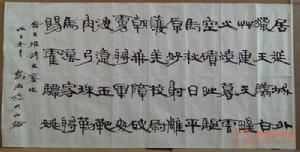 居延城外
獵天驕白
艸連天野
火燒暮雲
空磧時驅
馬秋日平
原好射雕
護羌校尉
朝乘障破
虜將軍夜
渡遼玉靶
角弓珠勒
馬漢家將
賜霍嫖姚
王維詩出塞作